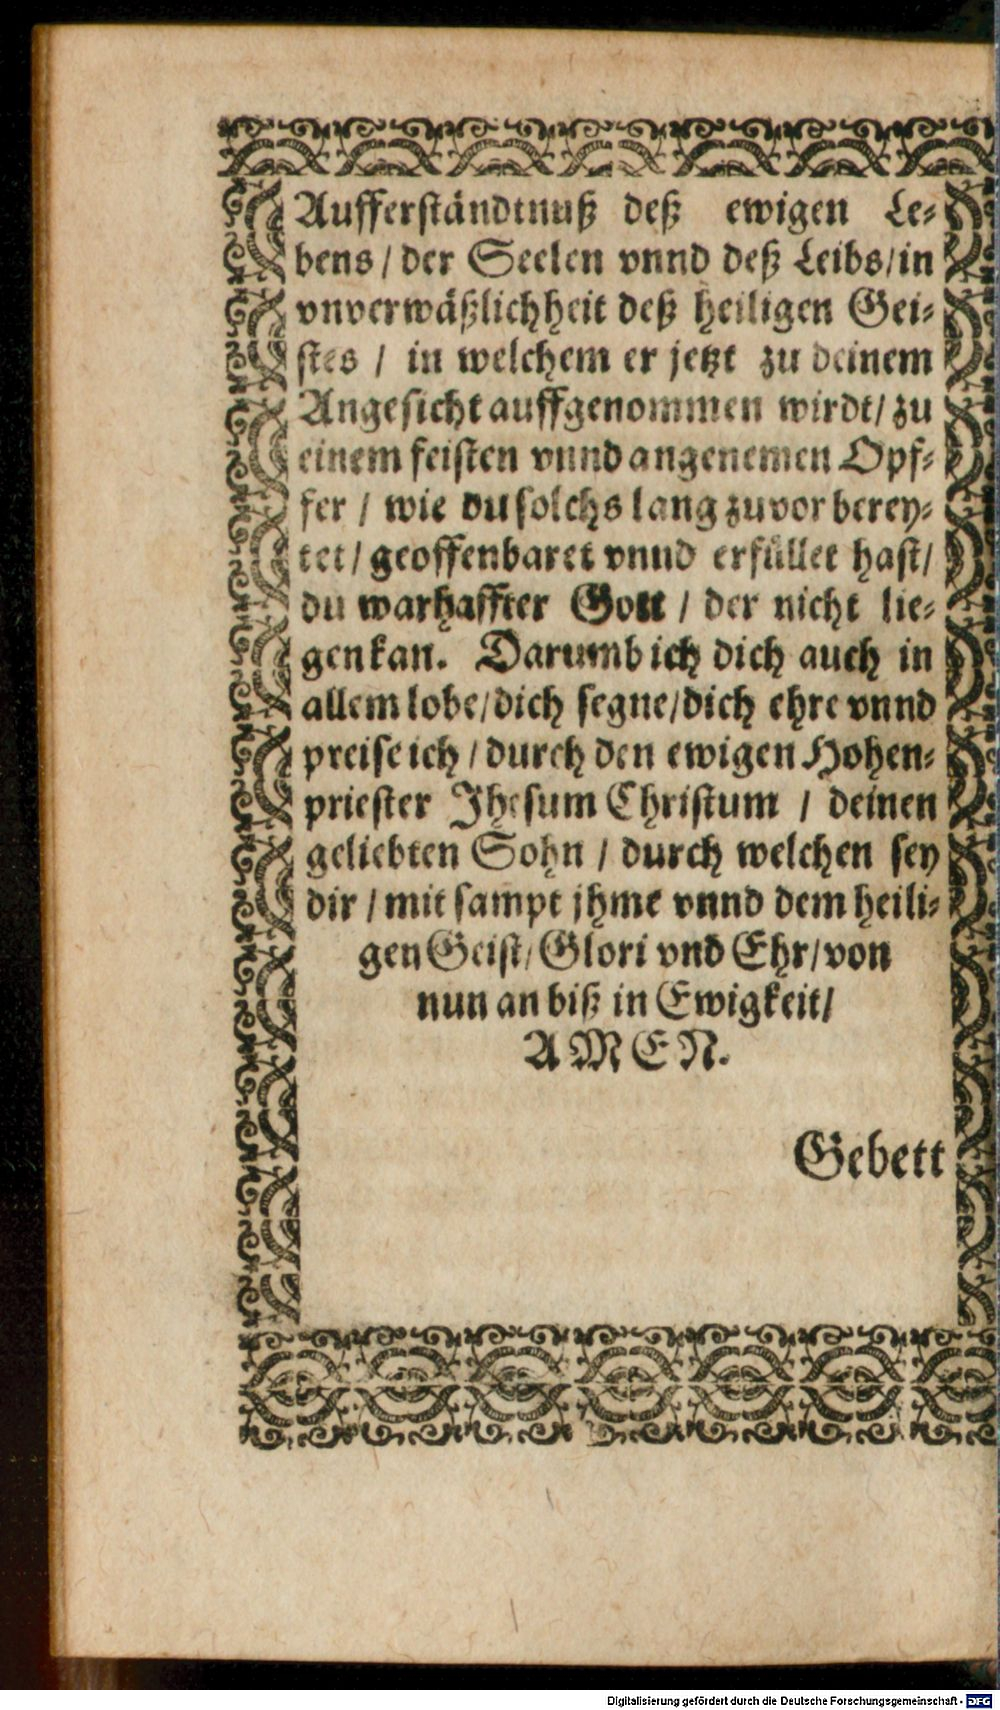 Aufferständtnuß deß ewigen Le-
bens / der Seelen vnnd deß Leibs / in
vnverwäßlichheit deß heiligen Gei-
stes / in welchem er jetzt zu deinem
Angesicht auffgenommen wirdt / zu
einem feisten vnnd angenemen Opf-
fer / wie du solchs lang zuvor berey-
tet / geoffenbaret vnnd erfüllet hast /
du warhaffter Gott / der nicht lie-
gen kan. Darumb ich dich auch in
allem lobe / dich segne / dich ehre vnnd
preise ich / durch den ewigen Hohen-
priester Jhesum Christum / deinen
geliebten Sohn / durch welchen sey
dir / mit sampt jhme vnnd dem heili-
gen Geist / Glori vnd Ehr / von
nun an biß in Ewigkeit /
AMEN.
Gebett
Digitalisierung gefördert durch die Deutsche Forschungsgemeinschaft - DFG